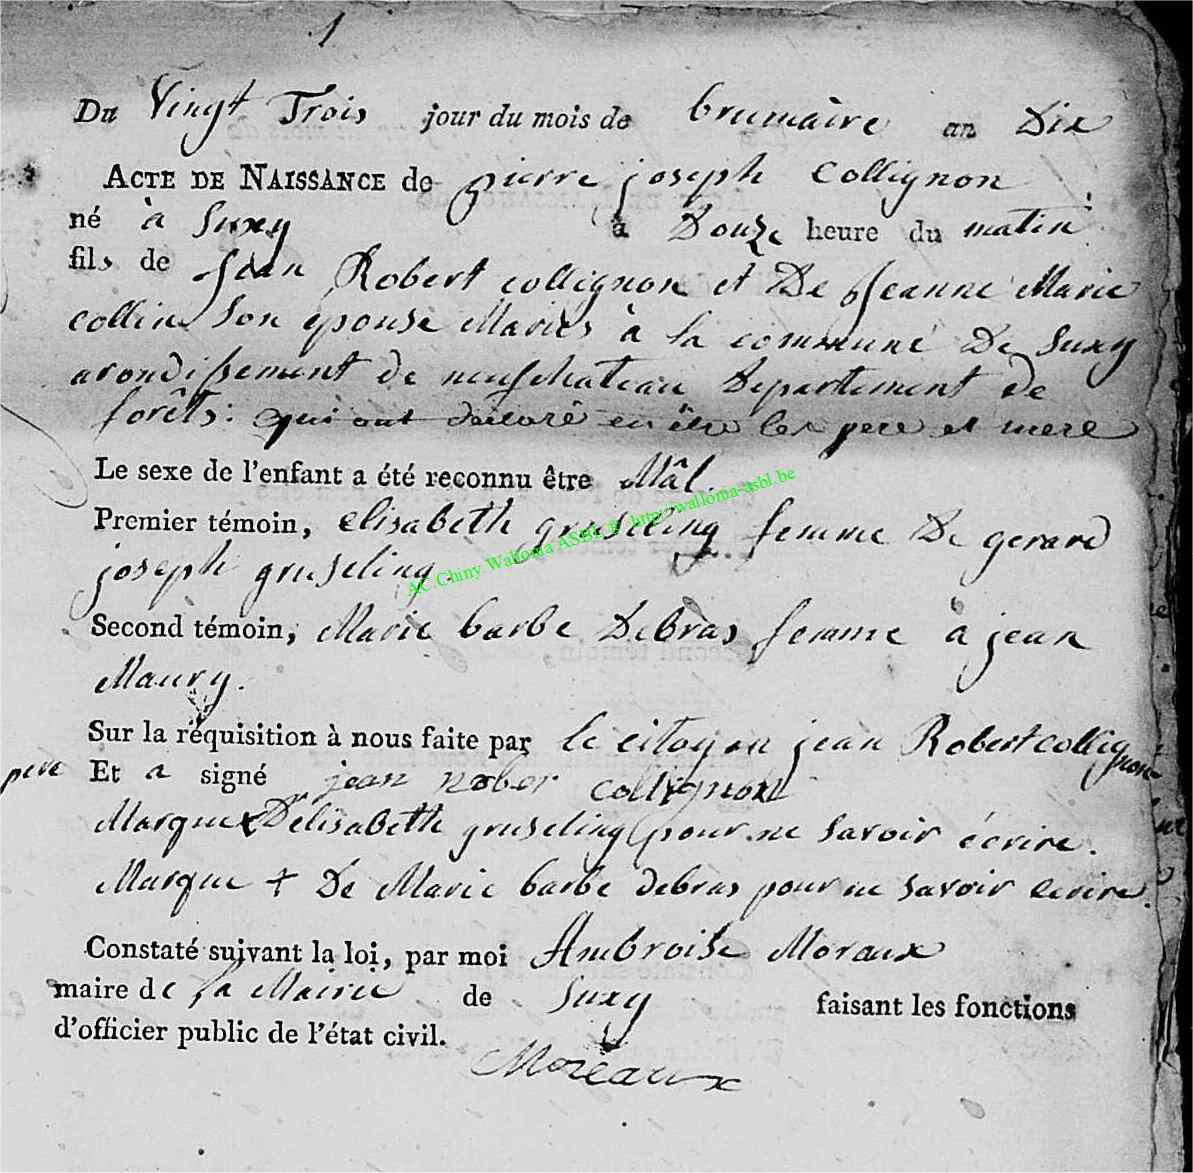 1
Du Vingt Trois jour du mois de brumaire an Dix
ACTE DE NAISSANCE de pierre joseph collignon
né à Suxy à Douze heure du matin
fils de jean Robert collignon et De Jeanne Marie
collin Son epouse Mariés à la communé De Suxy
arondissement de neufchateau Departement de
forêts: qui ont déclaré en être les pere et mere
Le sexe de l'enfant a été reconnu être Mâl.
Premier témoin, elisabeth gruseling femme De gerard
joseph gruseling.
Second témoin, Marie barbe Debras femme à jean
Maury.
Sur la réquisition à nous faite par le citoyen jean Robert collignon
pere Et a signé jean rober collignon
Marque x D'elisabeth gruseling pour ne savoir écrire.
Marque + De Marie barbe debras pour ne savoir ecrire.
Constaté suivant la loi, par moi Ambroise Moraux
maire de la Mairie de Suxy faisant les fonctions
d'officier public de l'état civil.
Moreaux
AC.Chiny.Walloma ASBL © http://walloma-asbl.be